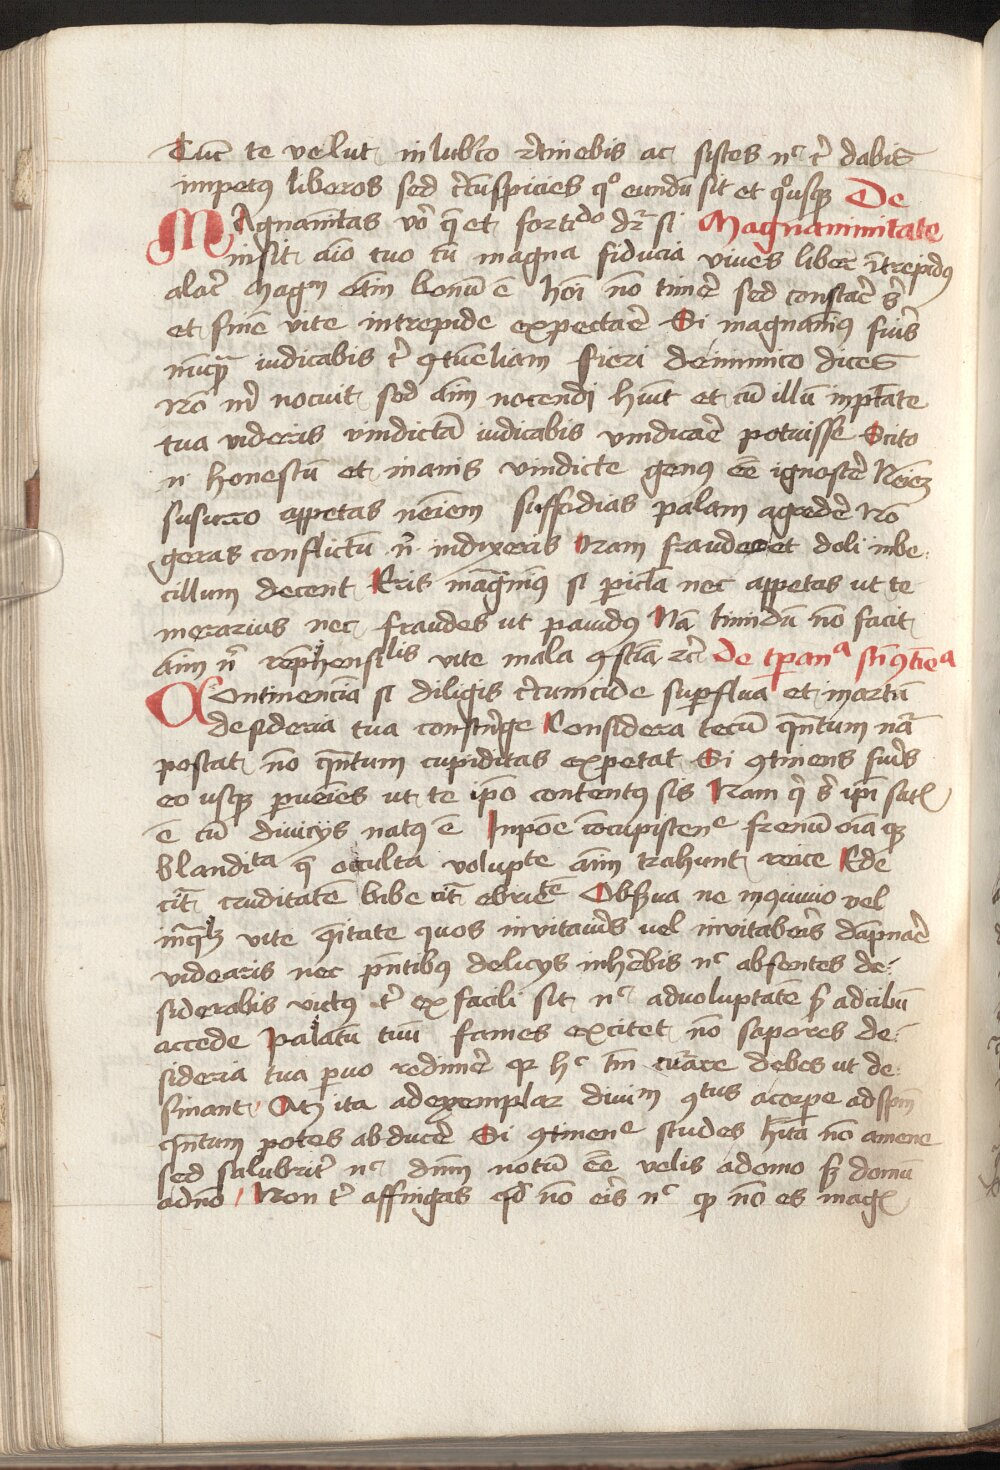 Tunc te velut in lubrico retinebis ac sistes nec tibi dabis
impetus liberos sed circumspicies quo eundum sit et quousque De
Magnanimitas vero que et fortitudo dicitur si Magnanimitate
insit animo tuo cum magna fiducia vives liber intrepidus
alacer Magnum etenim bonum est homini non timere sed constare sibi
et finem vite intrepide expectare Si magnanimus fueris
nunquam iudicabis tibi contumeliam fieri de inimico dices
Non michi nocuit sed animum nocendi habuit et cum illum in potestate
tua videris vindictam iudicabis vindicare potuisse Scito
enim honestum et inanis vindicte genus esse ignoscere Neminem
susurro appetas neminem suffodias palam agredere Non
geras conflictum nisi indixeris Nam fraudes et doli inbe
cillum decent Eris magnanimus si pericula nec appetas ut te
merarius nec fraudes ut pavidus Nam timidum non facit
animum nisi reprehensibilis vite mala conscientia etc De temperancia seu continencia
Continencia si diligis circumcide superflua et in artum
desideria tua constringe Considera tecum quantum natura
poscat non quantum cupiditas expetat Si continens fueris
eo usque pervenies ut te ipso contentus sis Nam qui sibi ipsi satis
est cum diviciis natus est Inpone concupiscencie frenum omniaque
blandita que occulta voluptate animum trahunt reice Ede
citra cruditatem bibe citra ebrietatem Observa ne in convivio vel
in qualibet vite communitate quos invitaveris vel invitaberis dampnare
videaris nec presentibus deliciis inherebis nec absentes de
siderabis victus tibi ex facili sit nec ad voluptatem sed ad cibum
accede Palatum tuum fames excitet non sapores de
sideria tua parvo redimere quia hoc tantum curare debes ut de
sinant Atque ita ad exemplar divinum compositus a corpore ad spiritum
quantum potes abducere Si continencie studes habita non amene
sed salubriter nec dominum notum esse velis a domo sed domum
a domino Non tibi affingas quod non eris nec quod non es magis